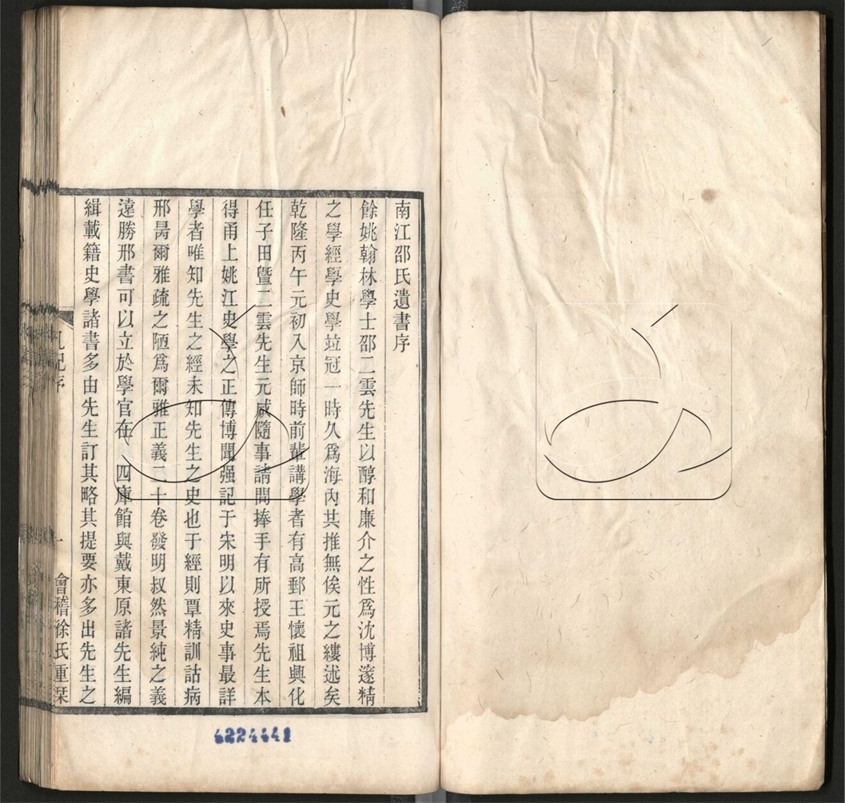 南江邵氏遺書序
餘姚翰林學士邵二雲先生以醇和廉介之性爲沈博邃精
之學經學史學竝冠一時久爲海內共推無俟元之縷述矣
乾隆丙午元初入京師時前輩講學者有高郵王懷祖興化
任子田暨二雲先生元咸隨事請問捧手有所授焉先生本
得甬上姚江史學之正傳博聞强記于宋明以來史事最詳
學者唯知先生之經未知先生之史也于經則覃精訓詁病
邢昺爾雅疏之陋爲爾雅正義二十卷發明叔然景純之義
遠勝邢書可以立於學官在 四庫館與戴東原諸先生編
緝載籍史學諸書多由先生訂其略其提要亦多出先生之
札記序
一
會稽徐氏重栞
4224441